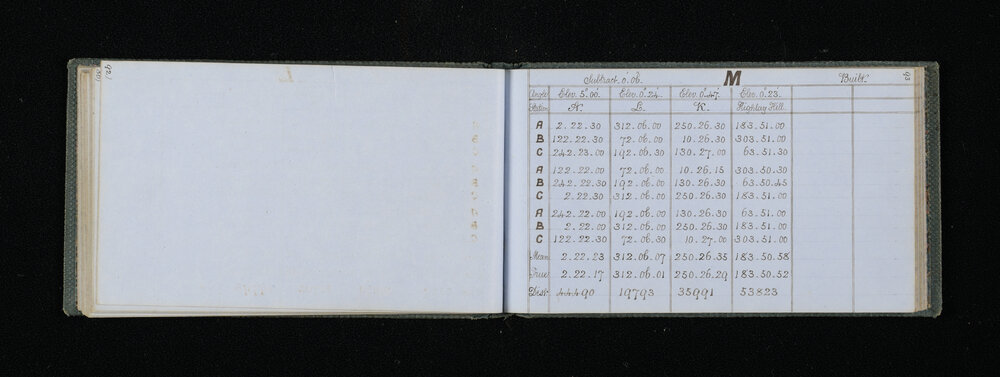 92)
(50)
93
Subtract 0.06. M Built.
Angle Elev. 5.00. Elev. 0.24. Elev. 0.47. Elev. 0.23.
Station N. L. K. Highlay Hill.
A 2.22.30 312.06.00 250.26.30 183.51.00
B 122.22.30 72.06.00 10.26.30 303.51.00
C 242.23.00 192.06.30 130.27.00 63.51.30
A 122.22.00 72.06.00 10.26.15 303.50.30
B 242.22.30 192.06.00 130.26.30 63.50.45
C 2.22.30 312.06.00 250.26.30 183.51.00
A 242.22.00 192.06.00 130.26.30 63.51.00
B 2.22.00 312.06.00 250.26.30 183.51.00
C 122.22.30 72.06.30 10.27.00 303.51.00
Mean 2.22.23 312.06.07 250.26.35 183.50.58
True 2.22.17 312.06.01 250.26.29 183.50.52
Dist. 44490 19793 35991 53823